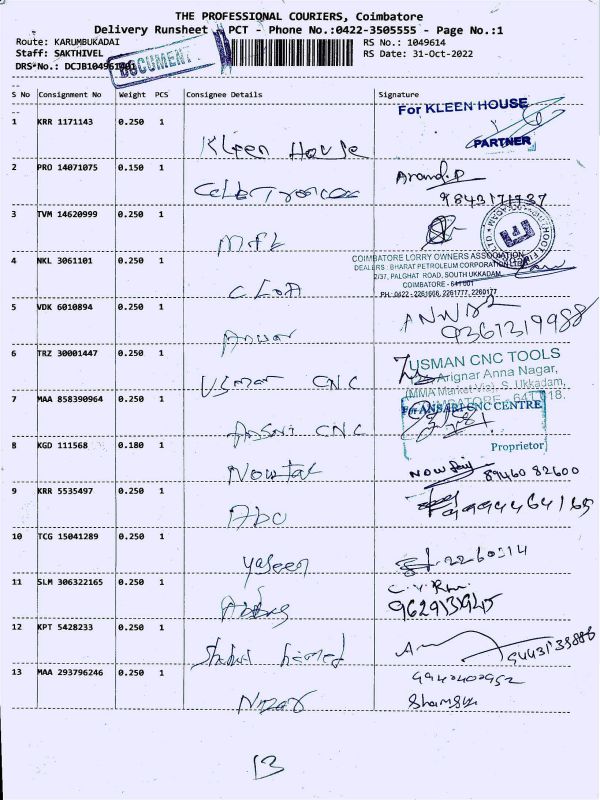 THE PROFESSIONAL COURIERS, Coimbatore
Delivery Runsheet PCT - Phone No.:0422-3505555 - Page No.:1
Route: KARUMBUKADAI RS No.: 1049614
Staff: SAKTHIVEL RS Date: 31-Oct-2022
DRS No.:
DOCUMENT
S No Consignment No Weight PCS Consignee Details Signature
1 KRR 1171143 0.250 1 Kleen House For KLEEN HOUSE
PARTNER
2 PRO 14071075 0.150 1 Anand.P
9843171737
3 TVM 14620999 0.250 1
4 NKL 3061101 0.250 1 COIMBATORE LORRY OWNERS ASSOCIATION
DEALERS : BHARAT PETROLEUM CORPORATION LTD
2/37, PALGHAT ROAD, SOUTH UKKADAM,
COIMBATORE - 641 001
PH.:0422 - 2261666, 2261777, 2260177
5 VDK 6010894 0.250 1 Anwar ANWAR
9361319988
6 TRZ 30001447 0.250 1 Usman CNC USMAN CNC TOOLS
Arignar Anna Nagar,
(MMA Market Via), S. Ukkadam,
COIMBATORE - 641 018.
7 MAA 858390964 0.250 1 Ansari CNC For ANSARI CNC CENTRE
Proprietor
8 KGD 111568 0.180 1 89460 82600
9 KRR 5535497 0.250 1 Abc 9994464165
10 TCG 15041289 0.250 1 Yaseen
11 SLM 306322165 0.250 1 Abbas
12 KPT 5428233 0.250 1
13 MAA 293796246 0.250 1 Nizar
13